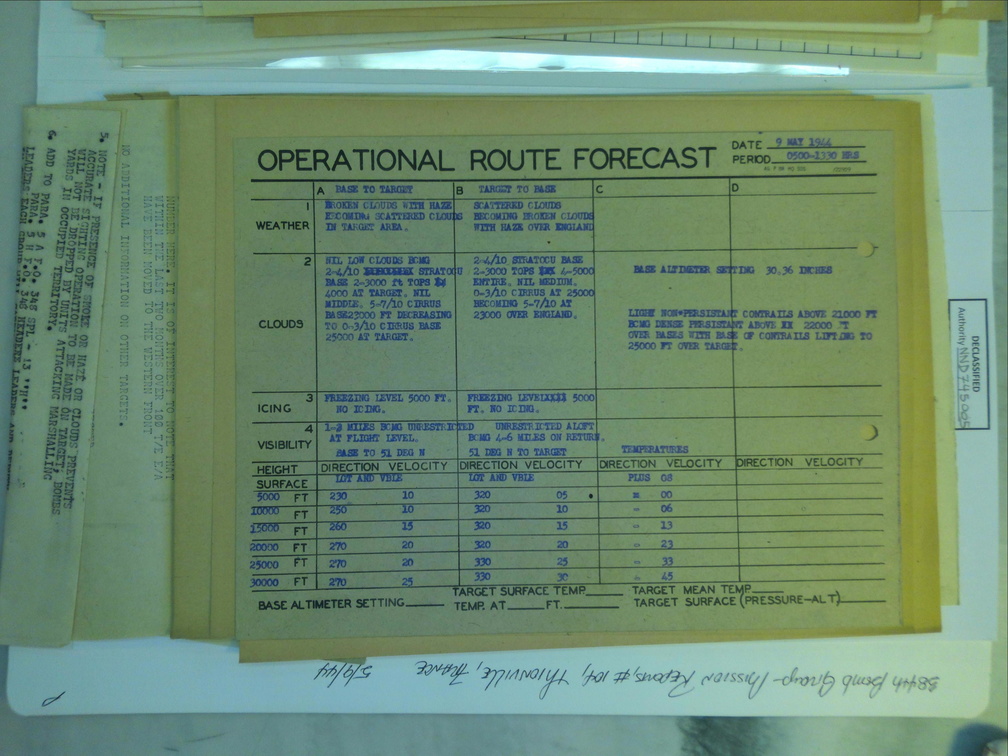 OPERATIONAL ROUTE FORECAST
DATE 9 MAY 1944
PERIOD 0500-1330 HRS
A BASE TO TARGET B TARGET TO BASE C D
1 WEATHER
BROKEN CLOUDS WITH HAZE
BECOMING SCATTERED CLOUDS
IN TARGET AREA.
SCATTERED CLOUDS
BECOMING BROKEN CLOUDS
WITH HAZE OVER ENGLAND
2 CLOUDS
NIL LOW CLOUDS BCMG
2-4/10 STRATOCU
BASE 2-3000 ft TOPS
4000 AT TARGET. NIL
MIDDLE. 5-7/10 CIRRUS
BASE23000 FT DECREASING
TO 0-3/10 CIRRUS BASE
25000 AT TARGET.
2-4/10 STRATOCU BASE
2-3000 TOPS XXX 4-5000
ENTIRE. NIL MEDIUM.
0-3/10 CIRRUS AT 25000
BECOMING 5-7/10 AT
23000 OVER ENGLAND.
BASE ALTIMETER SETTING 30.36 INCHES
LIGHT NON-PERSISTANT CONTRAILS ABOVE 21000 FT
BCMG DENSE PERSISTANT ABOVE XX 22000 ft
OVER BASES WITH BASE OF CONTRAILS LIFTING TO
25000 FT OVER TARGET.
3 ICING
FREEZING LEVEL 5000 FT.
NO ICING.
FREEZING LEVELXXXX 5000
FT. NO ICING.
4 VISIBILITY
1-2 MILES BCMG UNRESTRICTED
AT FLIGHT LEVEL.
BASE TO 51 DEG N
UNRESTRICTED ALOFT
BCMG 4-6 MILES ON RETURN.
51 DEG N TO TARGET
TEMPERATURES
HEIGHT DIRECTION VELOCITY DIRECTION VELOCITY DIRECTION VELOCITY DIRECTION VELOCITY
SURFACE LGT AND VBLE LGT AND VBLE PLUS 08
5000 FT 230 10 320 05 00
10000 FT 250 10 320 10 - 06
15000 FT 260 15 320 15 - 13
20000 FT 270 20 320 20 - 23
25000 FT 270 20 330 25 - 33
30000 FT 270 25 330 30 - 45
BASE ALTIMETER SETTING
TARGET SURFACE TEMP.
TEMP. AT FT.
TARGET MEAN TEMP.
TARGET SURFACE (PRESSURE-ALT)
DECLASSIFIED
Authority NND745005
384th Bomb Group - Mission Reports, #104, Thionville, France 5/9/44
NUMBER HERE. IT IS OF INTEREST TO NOTE THAT
WITHIN THE LAST TWO MONTHS OVER 100
HAVE BEEN MOVED TO THE WESTERN FRONT
NO ADDITIONAL INFORMATION ON OTHER TARGETS.
5. NOTE - IF PRESENCE OF SMOKE OR HAZE OR CLOUDS PREVENTS
ACCURATE SIGHTING OPERATION TO BE MADE ON TARGET, BOMBS
WILL NOT BE DROPPED BY UNITS ATTACKING MARSHALLING
YARDS IN OCCUPIED TERRITORY.
6. ADD TO PARA. 5 A F.O. 348 SPL - 13